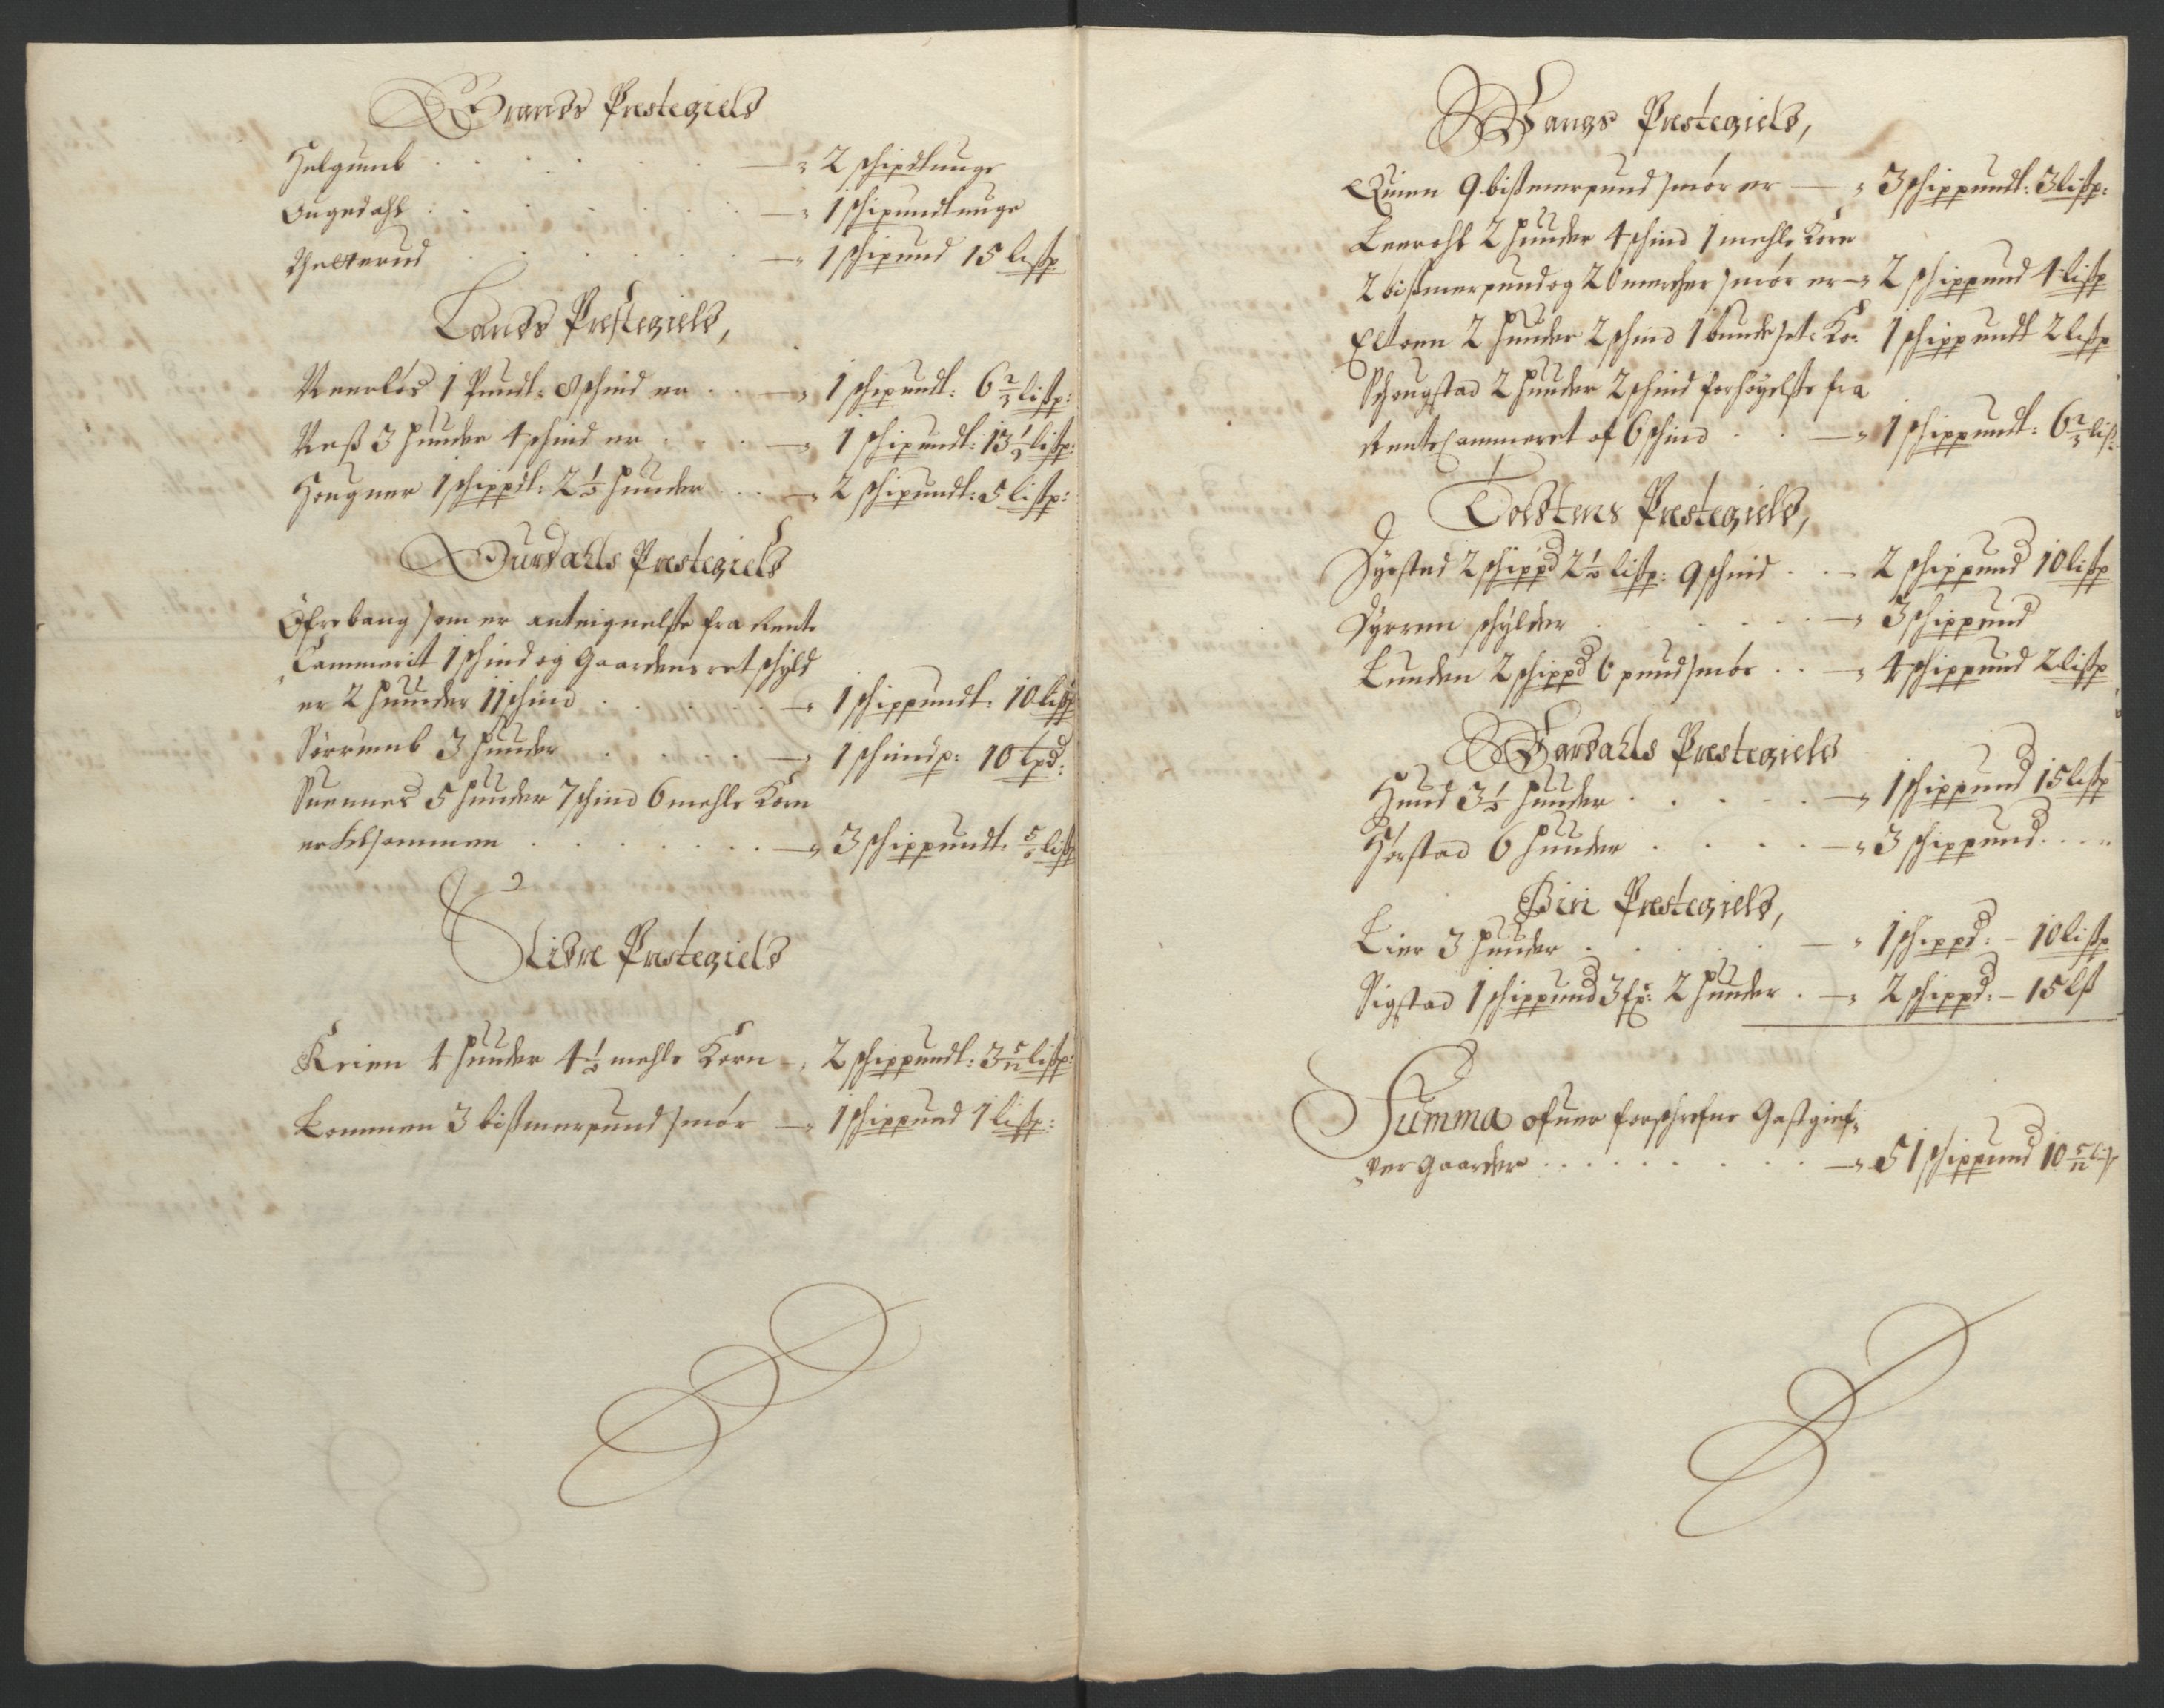 Brands Prestegield
Helgumb . . . . . . — 2 schipdtunge
Ougedahl . . . . . . — 1 schipundtunge
Thetterud . . . . . . — 1 schipund 15 lisp
Lands Prestegield,
Neerløs 1 Pundt: 8 schind er . . — 1 schipundt: 6 2/3 lisp:
Neß 3 hunder 4 schind er . . . — 1 schipundt: 13 1/3 lisp:
Hougner 1 schippdt: 2 1/2 hunder . . — 2 schipundt: 5 lisp:
Ourdahls Prestegield
Øfrebang som er anteignelse fra Rente
Cammerit 1 schind og Gaardens ret schyld
er 2 hunder 11 schind . . . . — 1 schippundt: 10 lisp
Sørrumb 3 hunder . . . . — 1 schindp: 10 lpd:
Suennes 5 hunder 7 schind 6 mehle Korn
er tilsammen . . . . . . — 3 schippundt: 5/6 lisp
Slidre Prestegield
Krien 4 hunder 4 1/2 mehle Korn — 2 schippundt: 3 5/12 lisp:
Lommen 3 bismerpund smør — 1 schippund 1 lisp:
Wangs Prestegield,
Quien 9 bismerpund smør er — 3 schippundt: 3 lisp:
Leerohl 2 hunder 4 schind 1 mehle Korn
2 bismerpund og 20 mercher smør er — 2 schippund 4 lisp
Eltoen 2 hunder 2 schind 1 bunde set: Ko: 1 schippundt 2 lisp
Schougstad 2 hunder 2 schind forhøyelse fra
RenteCammeret of 6 schind . . — 1 schippundt: 6 2/3 lis:
Toedtens Prestegield,
Dyrstad 2 schippd 2 1/2 lisp: 9 schind . . — 2 schippund 10 lisp
Dyrren schylder . . . . . — 3 schippund
Lunden 2 schippd 6 pund smør . . — 4 schippund 2 lisp
Wardahls Prestegield
Hund 3 1/2 hunder . . . . — 1 schippund 15 lisp
Hørstad 6 hunder . . . . — 3 schippund . . . .
Biri Prestegield,
Lier 3 hunder . . . . . — 1 schippd: – 10 lisp
Sigstad 1 schippund 3 fr: 2 hunder . — 2 schippd: – 15 lß
Summa ofuer forschrefne Gastgief-
ver Gaarder . . . . . . . . — 51 schippund 10 5/12 lis